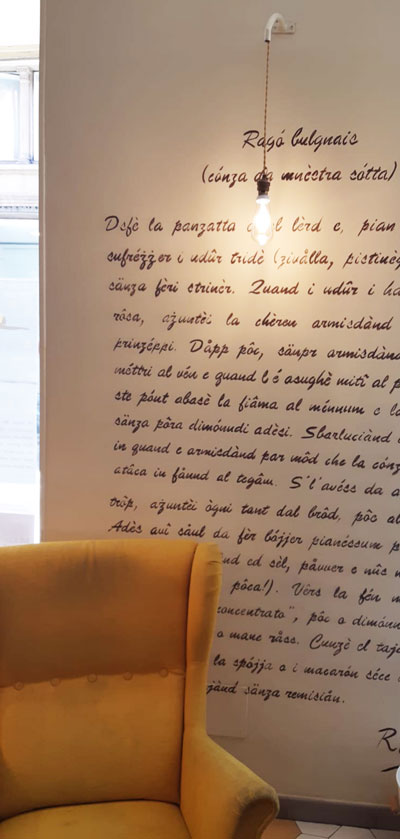 Ragó bulgnais
(cónza da mnèstra sótta)
Dsfè la panzatta l lèrd e, pian
sufrézzer i udûr tridè (zivålla, pistinèg
sänza fèri strinèr. Quand i udûr i
råsa, ażuntèi la chèren armisdànd
prinzéppi. Dåpp pôc, sänpr armisdànd
méttri al vén e quand l é asughè mitî al
ste pónt abasè la fiâma al ménnum e
sänza pôra dimónndi adèsi. Sbarluciànd
in quand e armisdànd par môd che la cónz
atâca in fånnd al tegâm. S'l'avéss da
tròp, ażuntèi ògni tant dal brôd, pôc
Adès avî såul da fèr bójjer pianéssum
nd ed sèl, påvver e nûs
pôca!). Vêrs la fén
concentrato", pôc o dimónn
o manc råss. Cunzè el taj
la spójja o i macarón séc
jànd sänza remisiân.
R